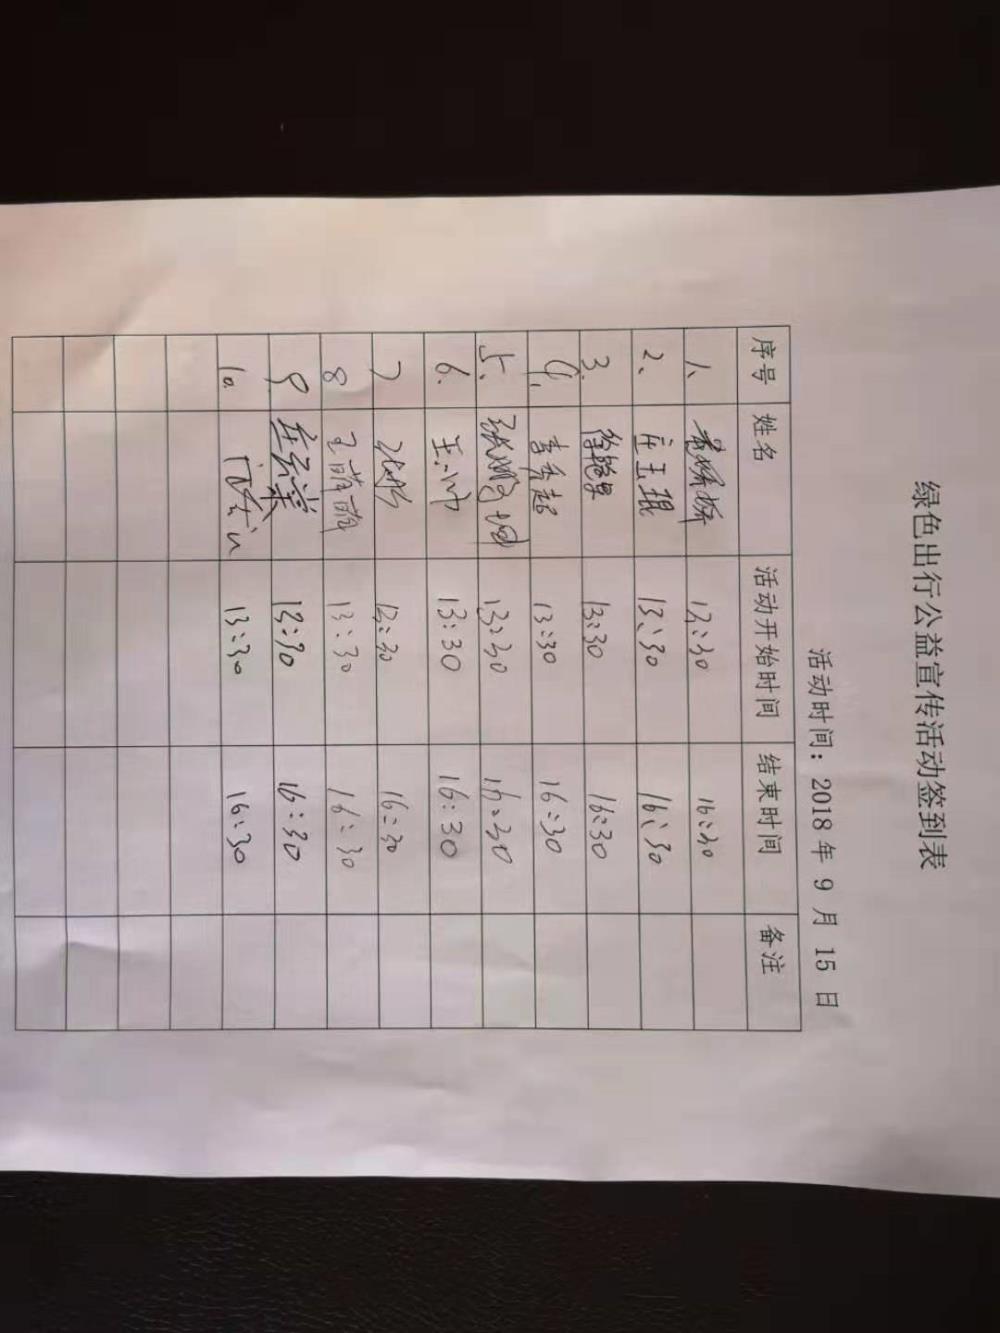 绿色出行公益宣传活动签到表
活动时间：2018 年 9 月 15 日
序号 姓名 活动开始时间 结束时间 备注
1、 13:30 16:30
2、 庄玉琨 13:30 16:30
3. 13:30 16:30
4. 李秀超 13:30 16:30
5. 13:30 16:30
6. 13:30 16:30
7 13:30 16:30
8 王萌萌 13:30 16:30
9 13:30 16:30
10. 13:30 16:30